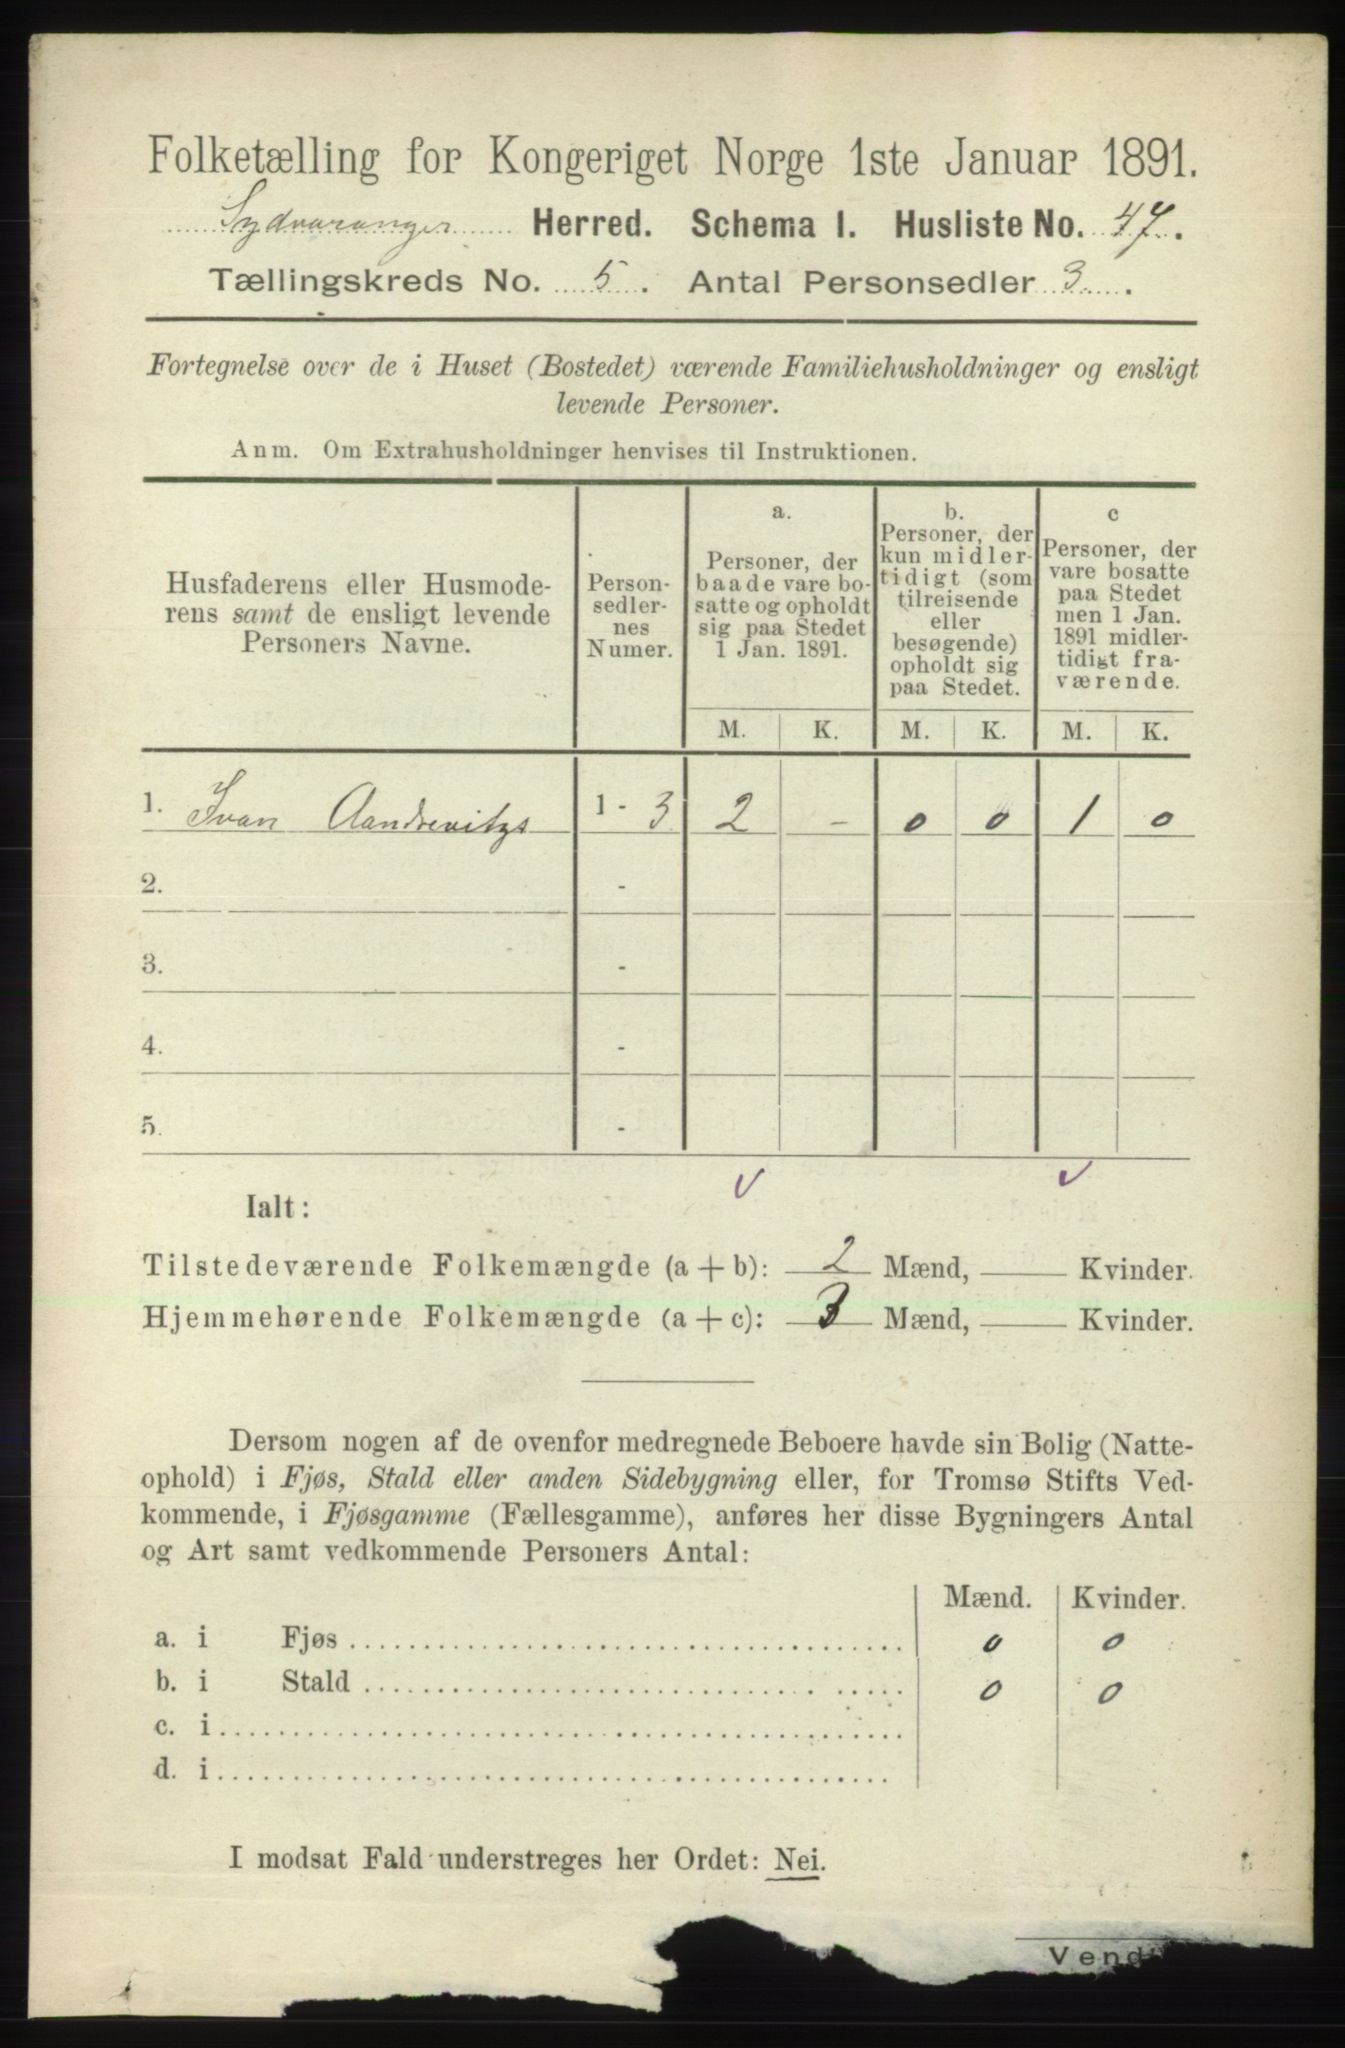 Folketælling for Kongeriget Norge 1ste Januar 1891.
Sydvaranger Herred. Schema I. Husliste No. 47.
Tællingskreds No. 5. Antal Personsedler 3.
Fortegnelse over de i Huset (Bostedet) værende Familiehusholdninger og ensligt
levende Personer.
Anm. Om Extrahusholdninger henvises til Instruktionen.
Husfaderens eller Husmode-
rens samt de ensligt levende
Personers Navne.
Person-
sedler-
nes
Numer.
a.
Personer, der
baade vare bo-
satte og opholdt
sig paa Stedet
1 Jan. 1891.
b.
Personer, der
kun midler-
tidigt (som
tilreisende
eller
besøgende)
opholdt sig
paa Stedet.
c
Personer, der
vare bosatte
paa Stedet
men 1 Jan.
1891 midler-
tidigt fra-
værende.
M. K. M. K. M. K.
1. Ivan Aandrevitzs 1 - 3 2 - 0 0 1 0
2. -
3. -
4. -
5. -
Ialt:
Tilstedeværende Folkemængde (a + b): 2 Mænd, Kvinder.
Hjemmehørende Folkemængde (a + c): 3 Mænd, Kvinder.
Dersom nogen af de ovenfor medregnede Beboere havde sin Bolig (Natte-
ophold) i Fjøs, Stald eller anden Sidebygning eller, for Tromsø Stifts Ved-
kommende, i Fjøsgamme (Fællesgamme), anføres her disse Bygningers Antal
og Art samt vedkommende Personers Antal:
Mænd. Kvinder.
a. i Fjøs 0 0
b. i Stald 0 0
c. i
d. i
I modsat Fald understreges her Ordet: Nei.
Vend